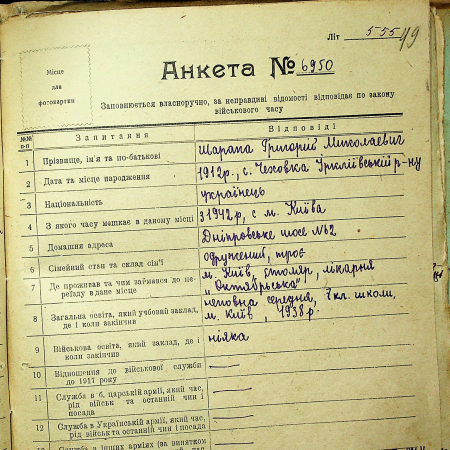 Літ 555
49
Місце
для
фотокартки
Анкета № 6950
Заповнюється власноручно, за неправдиві відомості відповідає по закону
військового часу
№№
п-п
Запитання
Відповіді
1 Прізвище, ім'я та по-батькові
Шарапа Григорий Миколаевич
2 Дата та місце народження
1912 р., с. Чеховка Іркліївський р-ну
3 Національність
українець
4 З якого часу мешкає в даному місці
з 1942 р, с м. Київа
5 Домашня адреса
Дніпровське шосе №2
6 Сімейний стан та склад сім'ї
одружений, троє
7 Де проживав та чим займався до переїзду в дане місце
м. Київ, столяр, лікарня
„Октябрьська"
8 Загальна освіта, який учбовий заклад,
де і коли закінчив
неповна середня, 7 кл. школи,
м. Київ, 1938 р.
9 Військова освіта, який заклад, де і
коли закінчив
ніяка
10 Відношення до військової служби
до 1917 року
11 Служба в б. царській армії, який час,
рід військ та останній чин і
посада
12 Служба в Українській армії, який час,
рід військ та останній чин і посада
13 Служба в інших арміях (за винятком